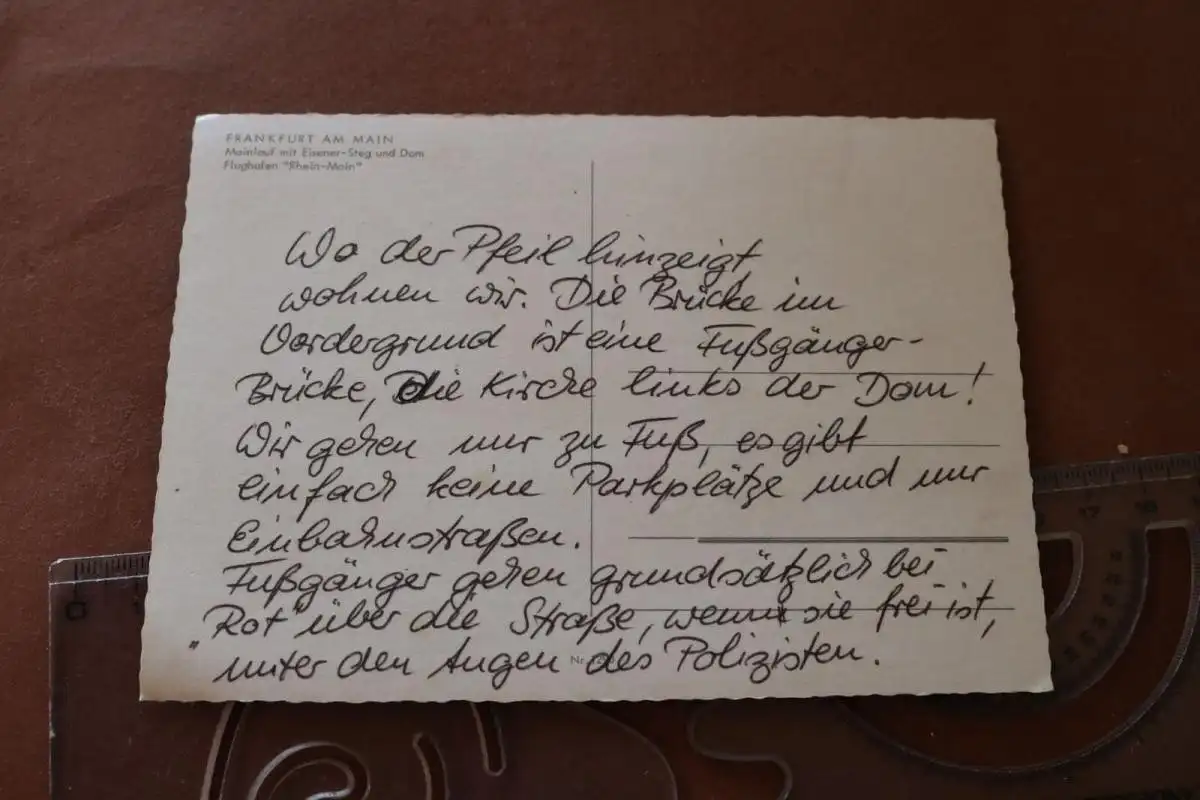 FRANKFURT AM MAIN
Mainlauf mit Eiserner-Steg und Dom
Flughafen "Rhein-Main"
Wo der Pfeil hinzeigt
wohnen wir. Die Brücke im
Vordergrund ist eine Fußgänger-
Brücke, die Kirche links der Dom!
Wir gehen nur zu Fuß, es gibt
einfach keine Parkplätze und nur
Einbahnstraßen.
Fußgänger gehen grundsätzlich bei
"Rot" über die Straße, wenn sie frei ist,
unter den Augen des Polizisten.
Nr.
0
17
18